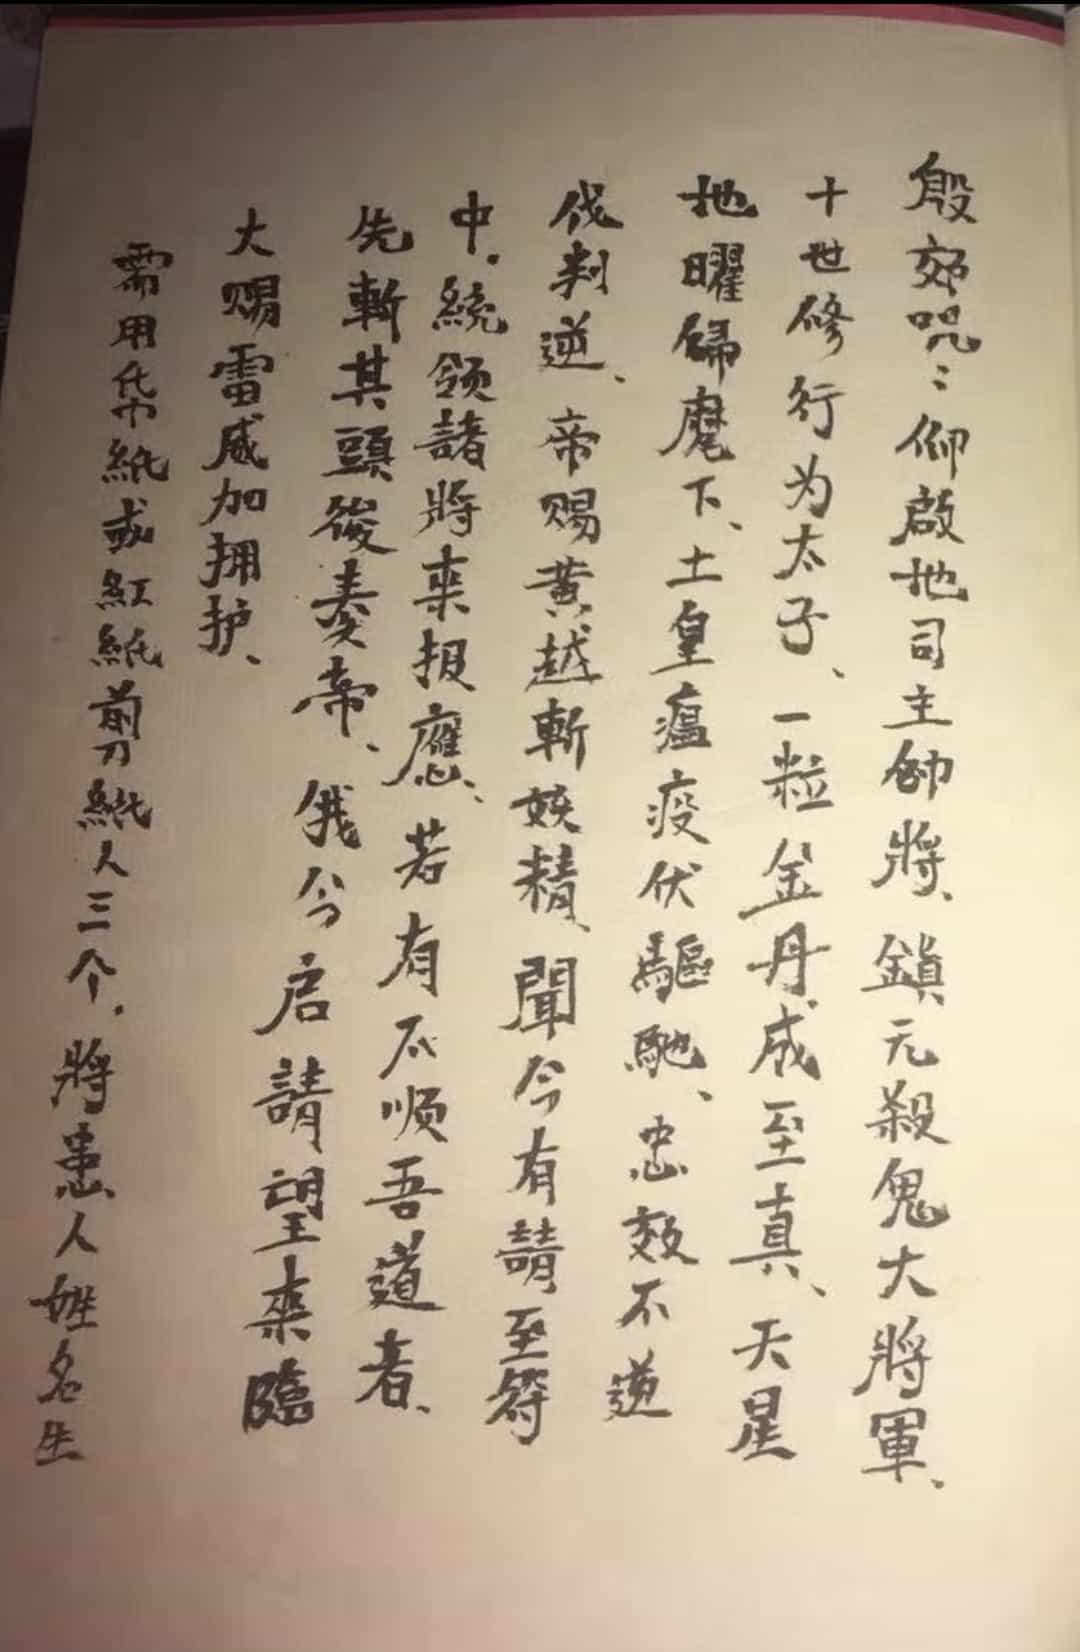 殷郊咒：仰啟地司主帥將、鎖元殺鬼大將軍、
十世修行为太子、一粒金丹成至真、天星
地曜歸麾下、土皇瘟疫伏驅馳、忠效不道
伐判逆、帝赐黄越斬妖精、聞今有請至符
中．統领諸將来报應、若有不顺吾道者、
先斬其頭後奏帝、我今启請望来臨
大赐雷威加拥护、
需用帋紙或紅紙剪紙人三个．將患人姓名生